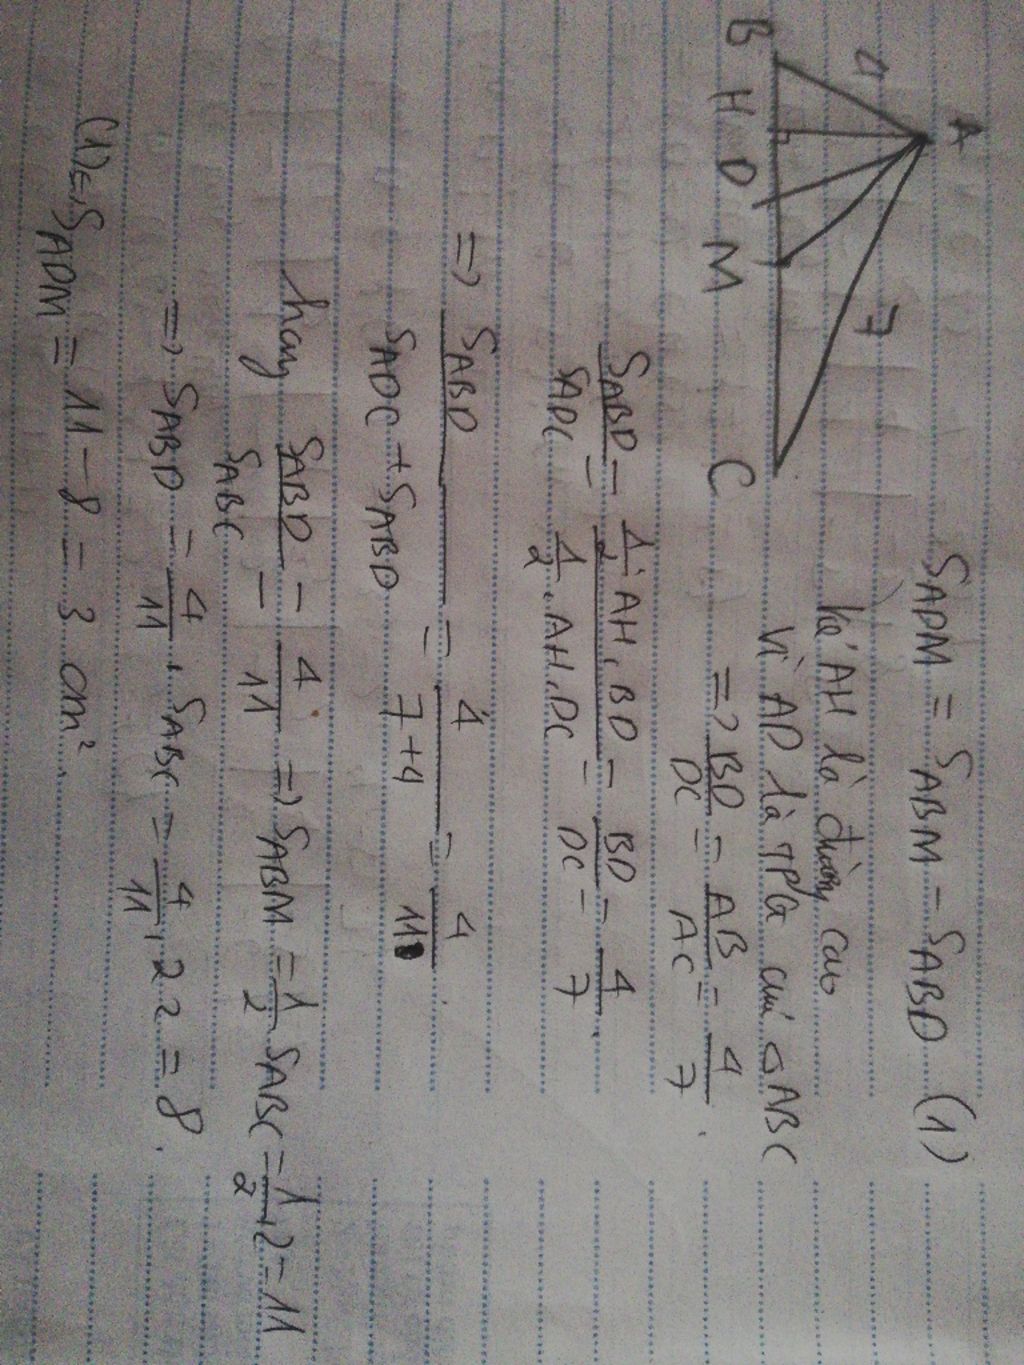 A
4
7
B H D M C
S_ADM = S_ABM - S_ABD (1)
Kẻ AH là đường cao
Vì AD là TPG của △ABC
=> BD/DC = AB/AC = 4/7.
S_ABD/S_ADC = (1/2.AH.BD)/(1/2.AH.DC) = BD/DC = 4/7.
=> S_ABD/(S_ADC + S_ABD) = 4/(7+4) = 4/11.
hay S_ABD/S_ABC = 4/11 => S_ABM = 1/2 S_ABC = 1/2.22 = 11
=> S_ABD = 4/11. S_ABC = 4/11.22 = 8.
(1) => S_ADM = 11 - 8 = 3 cm².